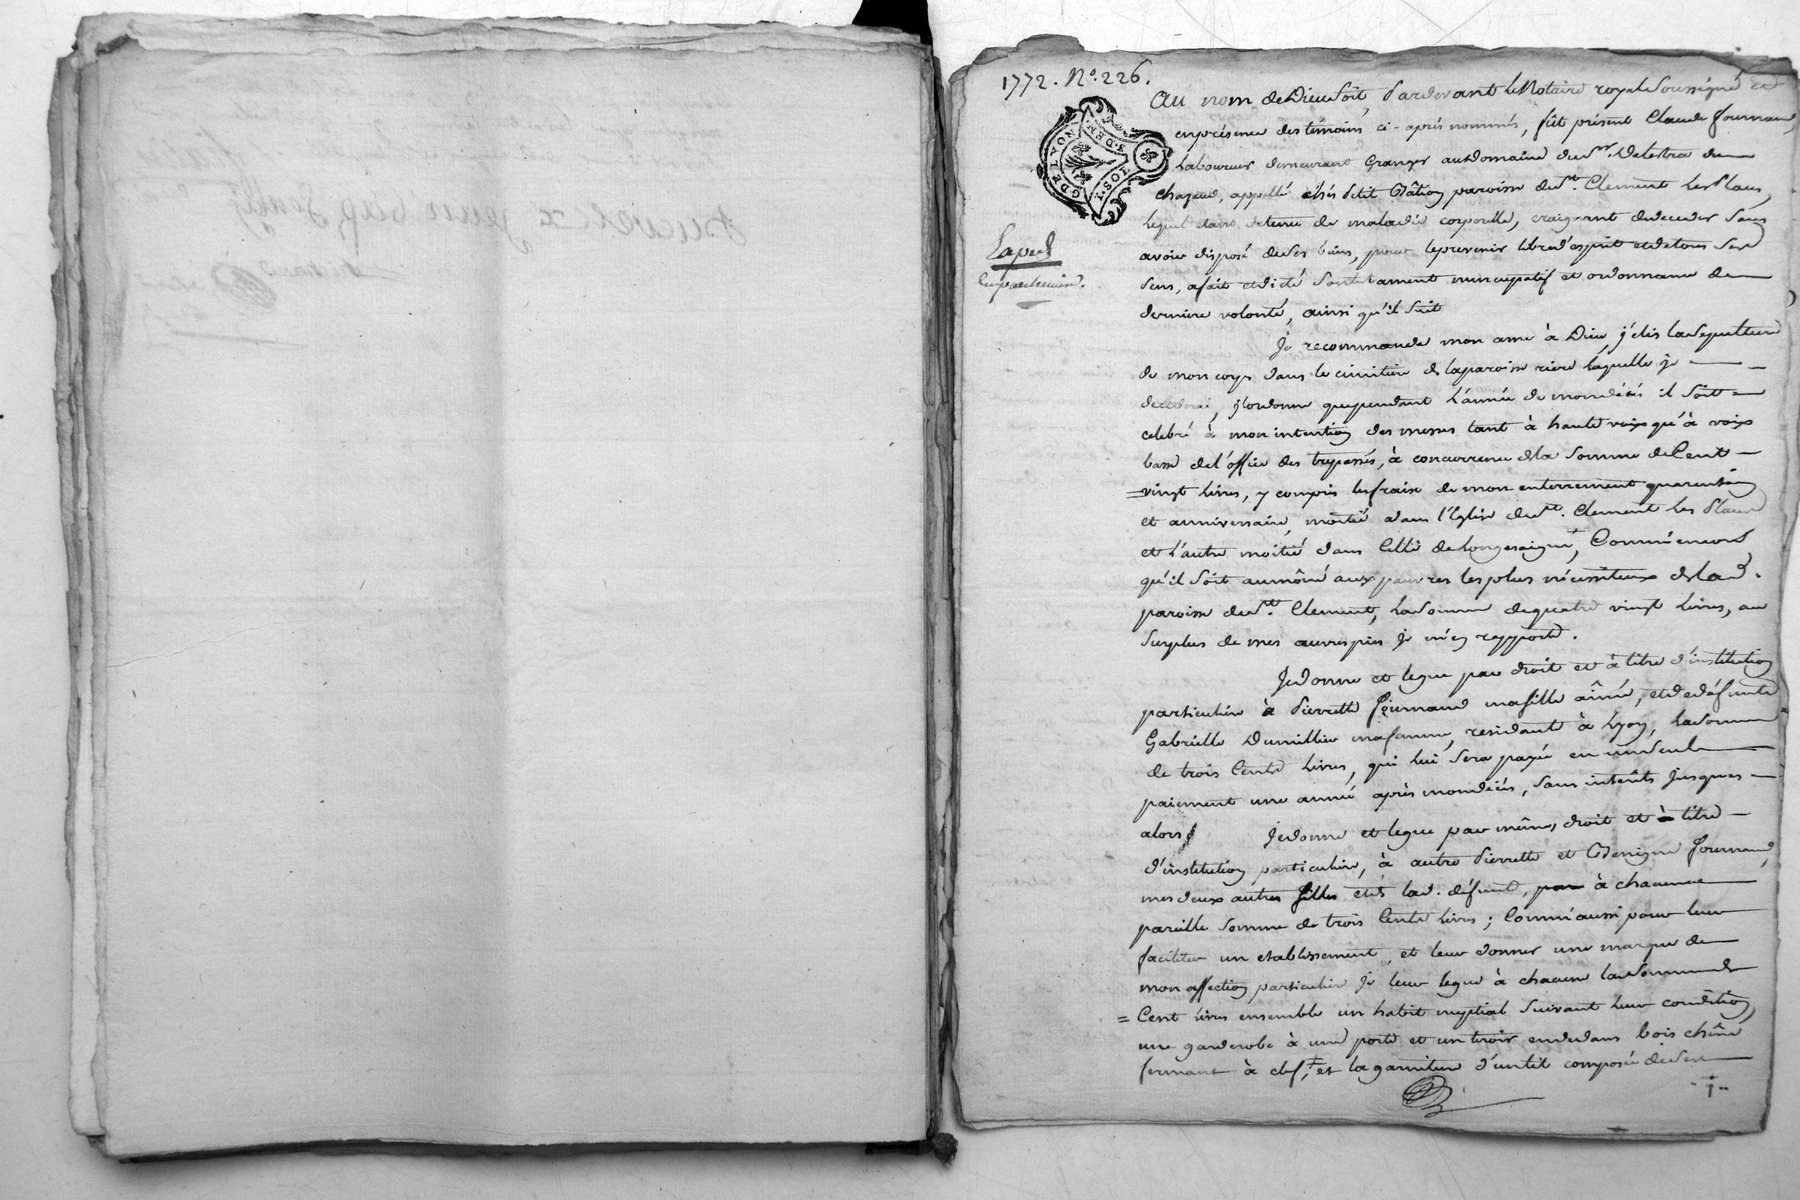 1772. N°. 226.
GDE LYON
3. DEM.
10S. 1
au nom de Dieu soit, pardevant le Notaire royal soussigné et
en présence des témoins ci-après nommés, fût présent Claude fournand,
Laboureur demeurant Granger au domaine du Sr. Delestra de
chazaud, appellé chés petit Bâtion paroisse de St. Clement Les Places,
lequel etant detenu de maladie corporelle, craignant de deceder sans
avoir disposé de ses biens, pour le prevenir libre d'esprit et de tous ses
sens, a fait et dicté son testament nuncupatif et ordonnance de
derniere volonté, ainsi qu'il suit
Je recommande mon ame à Dieu, j'elis la sepulture
de mon corps dans le cimitiere de la paroisse riere laquelle je
decederai, j'ordonne que pendant L'année de mon décés il soit
celebré à mon intention des messes tant à haute voix qu'à voix
basse de l'office des trepassés, à concurrence de la somme de Cent
vingt Livres, y compris les fraix de mon enterrement quarantain
et anniversaire, moitié dans l'Eglise de St. Clement Les Places
et L'autre moitié dans Celle de Longesaigne, Comm'encore
qu'il soit aumôné aux pauvres les plus nécessiteux de lad.
paroisse de St. Clement, La somme de quatre vingt Livres, au
surplus de mes œuvres pies je m'en rapporte.
Je donne et legue par droit et à titre d'institution
particuliere à Pierrette fournand ma fille aînée, et de défunte
Gabrielle Dumillier ma femme, residante à Lyon, La somme
de trois Cents Livres, qui lui sera payée en un seul
paiement une année après mon décés, sans interêts jusques
alors, Je donne et legue par même droit et à titre
d'institution particuliere, à autre Pierrette et Benigne fournand,
mes deux autres filles et de lad. défunte, à chacune
pareille somme de trois Cents Livres; Comm'aussi pour leur
faciliter un etablissement, et leur donner une marque de
mon affection particuliere je leur legue à chacune la somme de
Cent Livres ensemble un habit nuptial suivant leur condition,
une garderobe à une porte et un tiroir en dedans bois chêne
fermant à clef, et la garniture d'un lit composée de ses